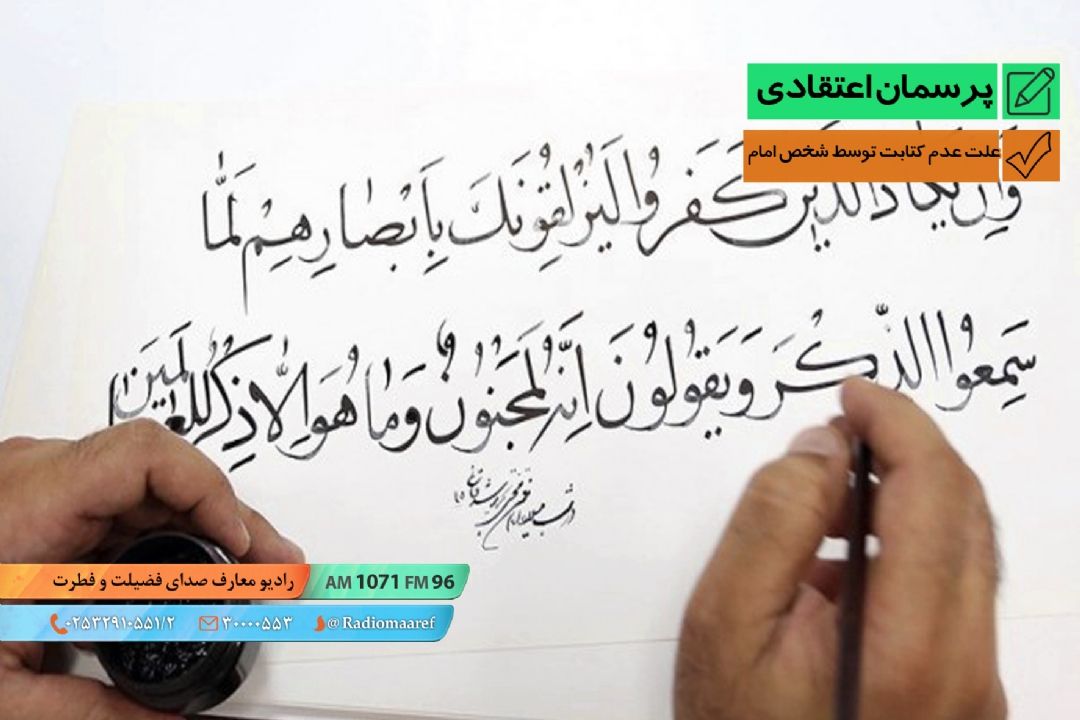 پرسمان اعتقادی
علت عدم کتابت توسط شخص امام
وَاِن یَکادُ الَّذینَ کَفَروا لَیُزلِقُونَکَ بِاَبْصارِهِمْ لَمّا
سَمِعُوا الذِّکْرَ وَ یَقُولُونَ اِنَّهُ لَمَجنُونٌ وَما هُوَ اِلّا ذِکرٌ لِلعالَمینَ
رادیو معارف صدای فضیلت و فطرت AM 1071 FM 96
۰۲۵۳۲۹۱۰۵۵۱/۲ ۳۰۰۰۰۵۵۳ @Radiomaaref